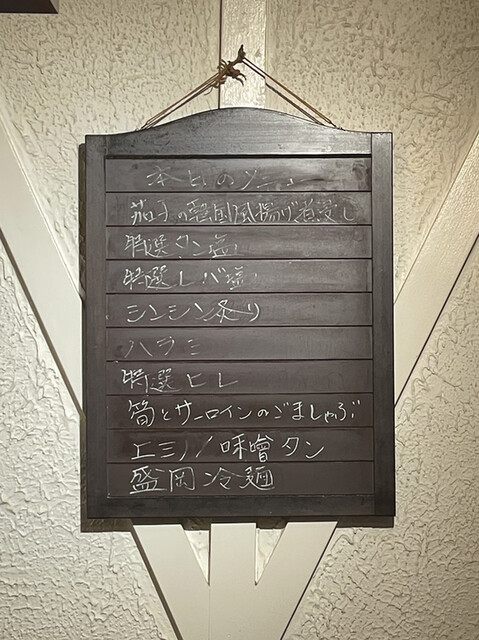 本日のメニュー
茄子の韓国風揚げ煮浸し
特選タン塩
特選レバ塩
シンシン炙り
ハラミ
特選ヒレ
筍とサーロインのごましゃぶ
エミノ/味噌タン
盛岡冷麺